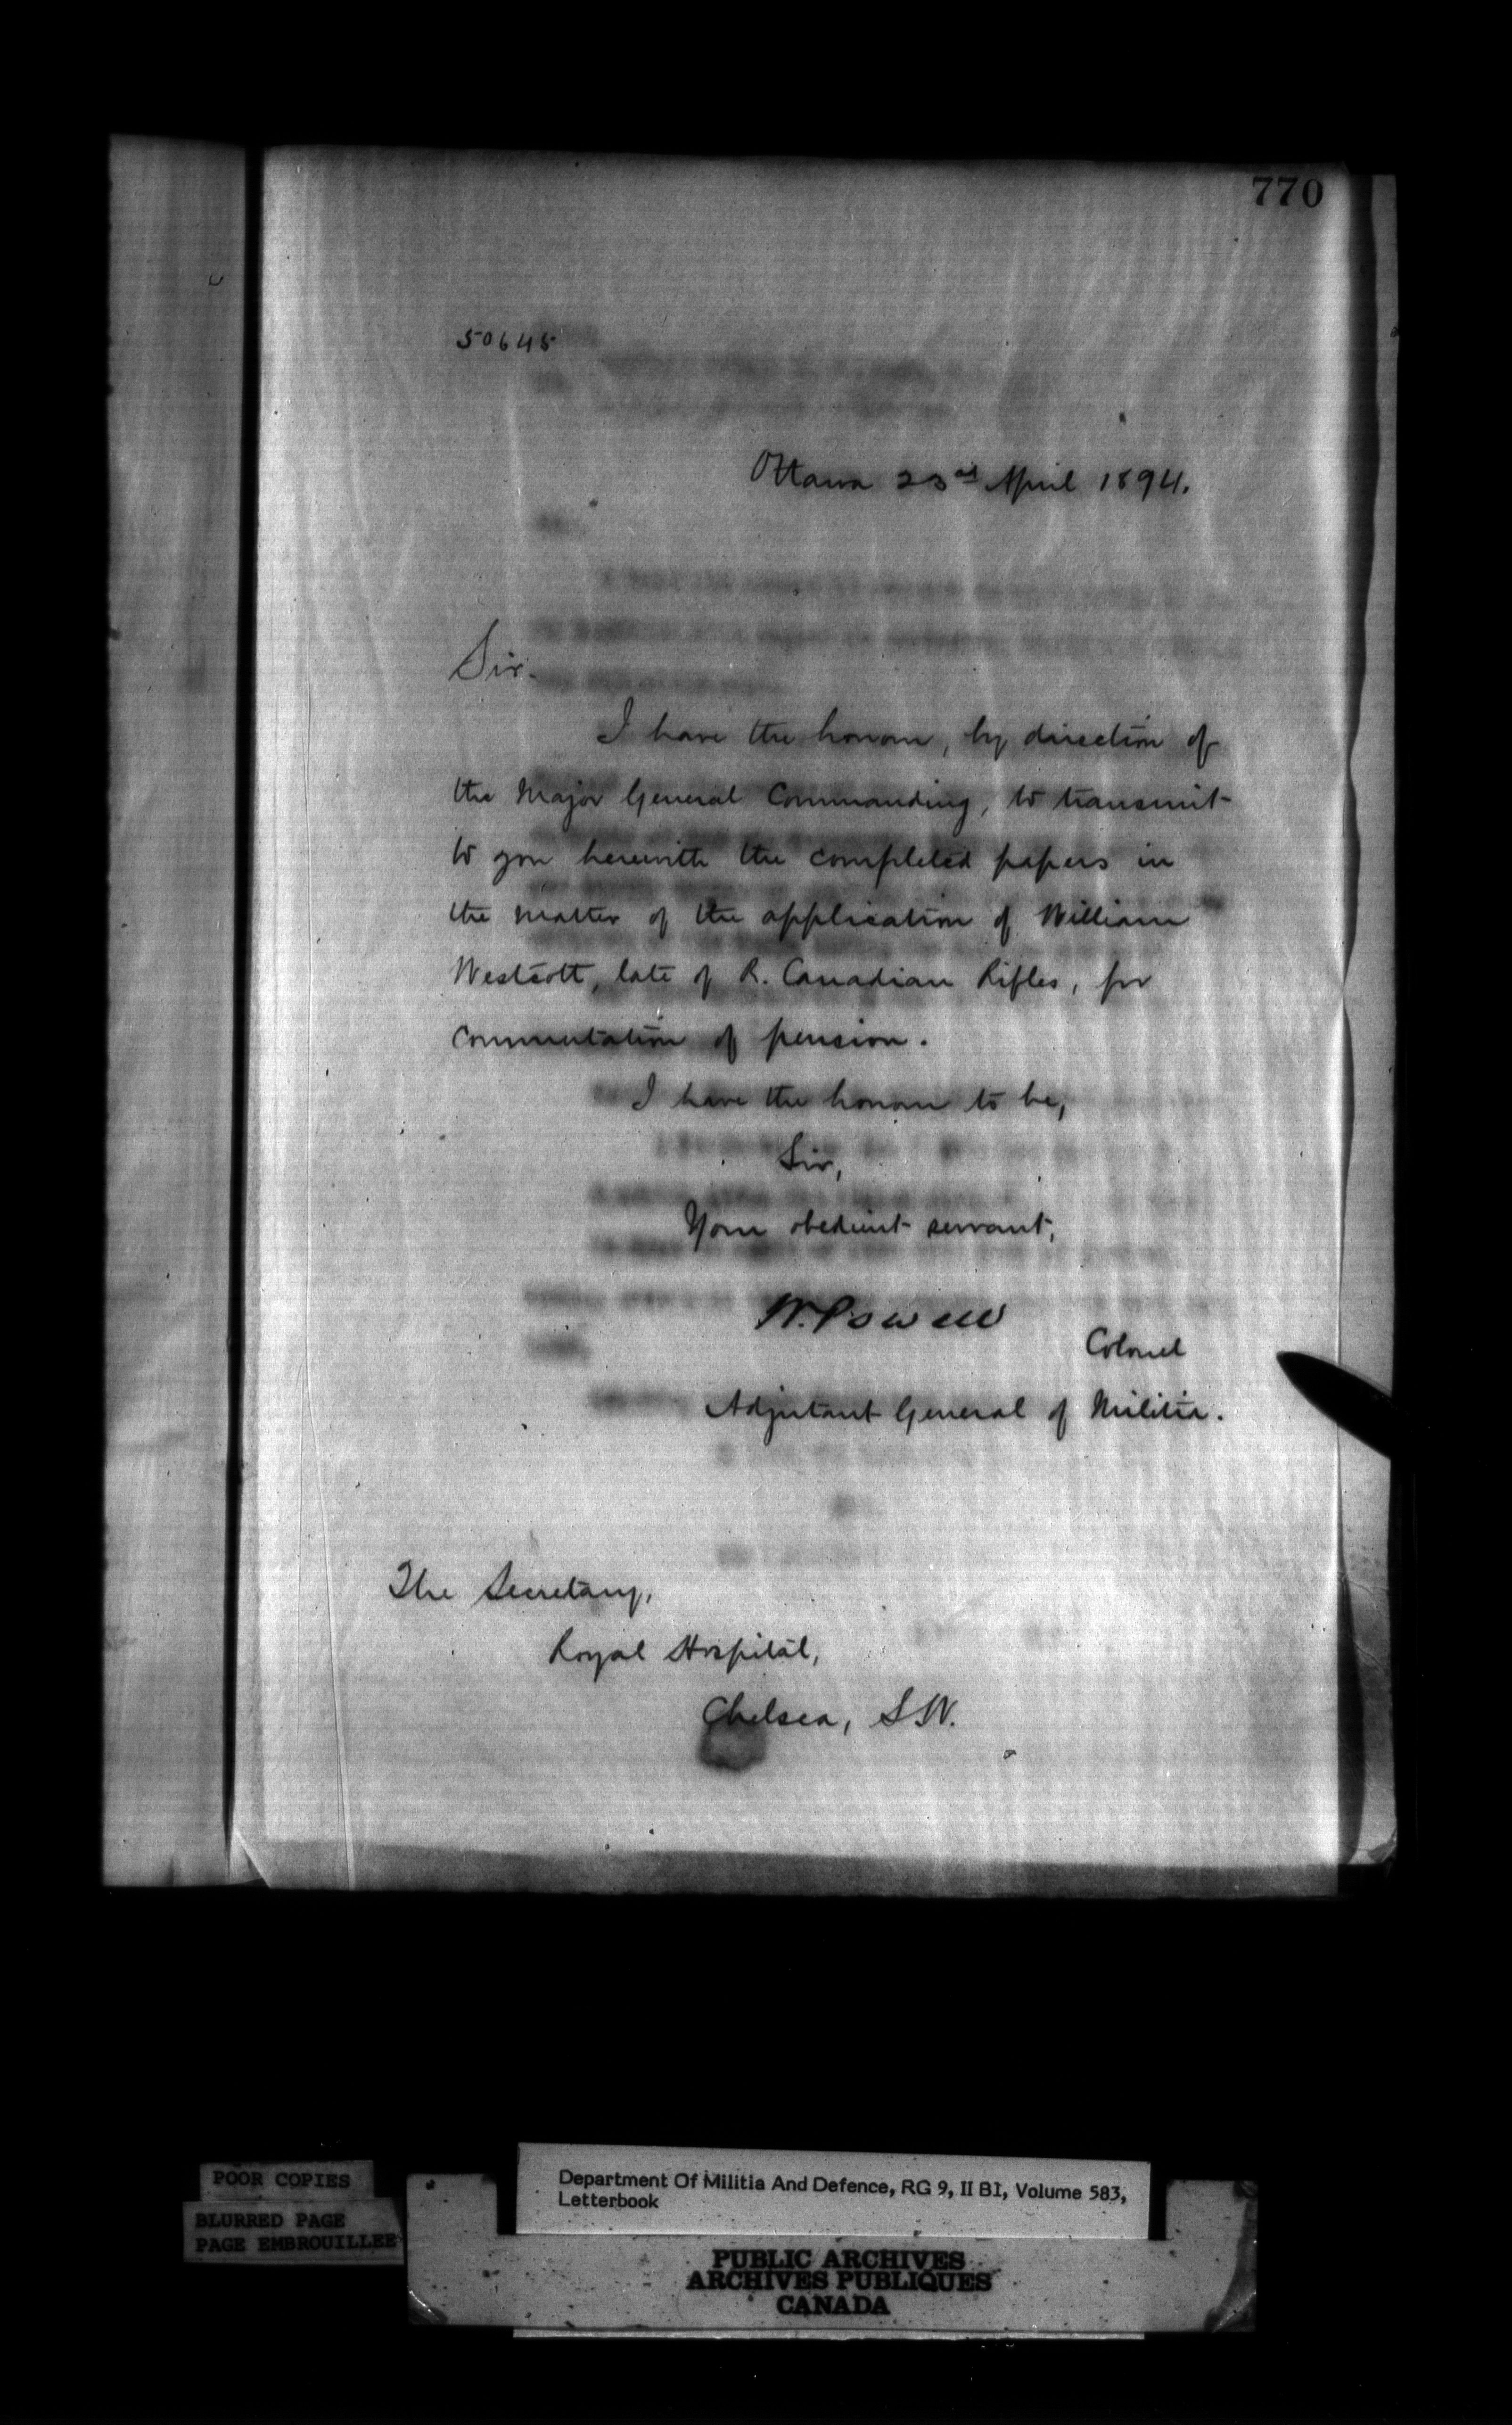 770
50645
Ottawa 23rd April 1894.
Sir.
I have the honour, by direction of
the Major General Commanding, to transmit
to you herewith the completed papers in
the matter of the application of William
Westcott, late of R. Canadian Rifles, for
Commutation of pension.
I have the honour to be,
Sir,
Your obedient servant,
W. Powell
Colonel
Adjutant General of Militia.
The Secretary,
Royal Hospital,
Chelsea, S.W.
POOR COPIES
BLURRED PAGE
PAGE EMBROUILLEE
Department Of Militia And Defence, RG 9, II B1, Volume 583,
Letterbook
PUBLIC ARCHIVES
ARCHIVES PUBLIQUES
CANADA